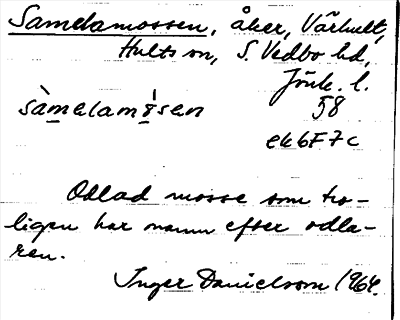 Samelamossen, åker, Vårhult,
Hults sn, S. Vedbo hd,
Jönk. l.
sàmelamósen 58
ek6F7c
Odlad mosse som tro-
ligen har namn efter odla-
ren.
Inger Danielsson 1964.